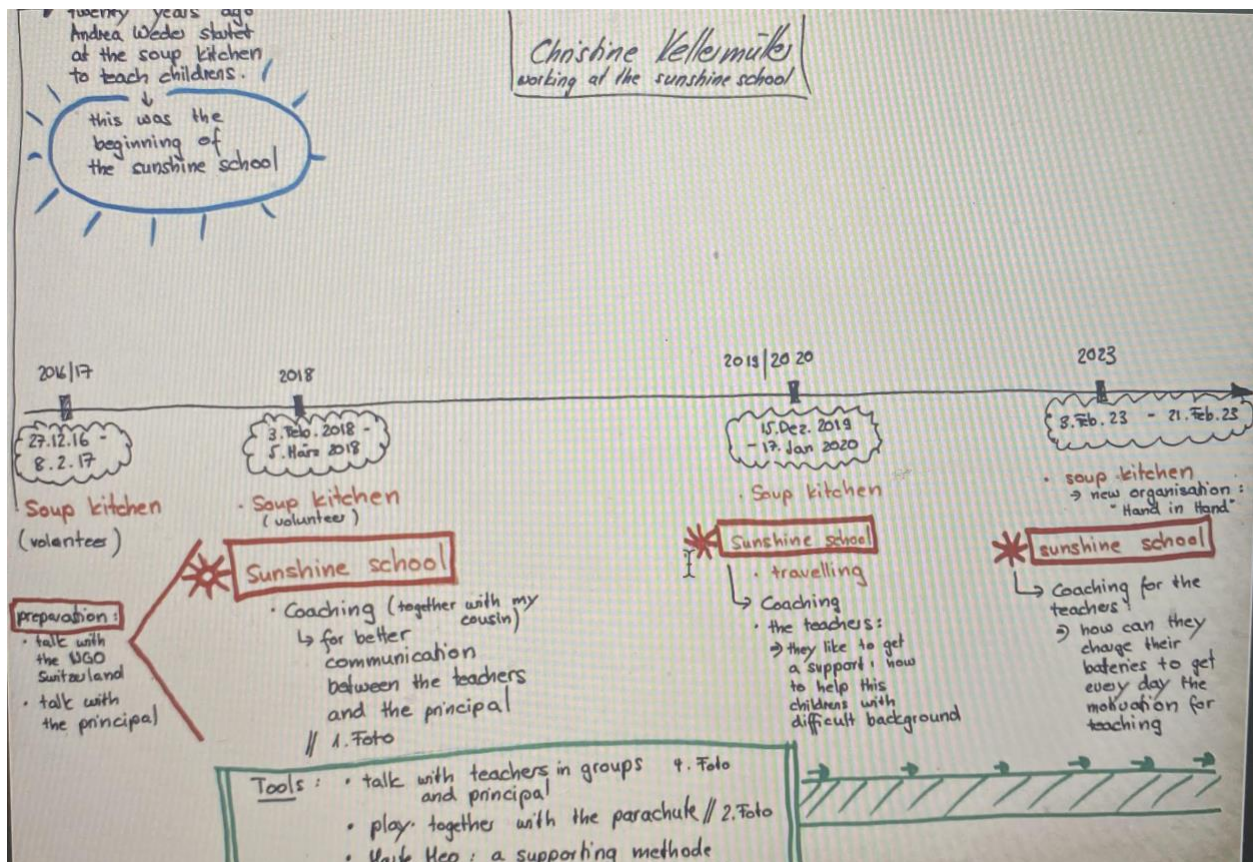 twenty years ago
Andrea Weder startet
at the soup kitchen
to teach childrens.
this was the
beginning of
the sunshine school
Christine Kellermüller
working at the sunshine school
2016/17
27.12.16 -
8.2.17
Soup kitchen
(volanteer)
preparation:
• talk with
the NGO
Switzerland
• talk with
the principal
2018
3. Feb. 2018 -
5. März 2018
• Soup kitchen
(volunteer)
Sunshine school
• Coaching (together with my
cousin)
↳ for better
communication
between the teachers
and the principal
// 1. Foto
2019/2020
15. Dez. 2019
- 17. Jan 2020
• Soup kitchen
Sunshine school
• travelling
↳ Coaching
• the teachers:
⇒ they like to get
a support: how
to help this
childrens with
difficult background
2023
8. Feb. 23 - 21. Feb. 23
• soup kitchen
⇒ new organisation:
"Hand in Hand"
sunshine school
↳ Coaching for the
teachers:
⇒ how can they
charge their
bateries to get
every day the
motivation for
teaching
Tools: • talk with teachers in groups 4. Foto
and principal
• play together with the parachute // 2. Foto
• : a supporting methode